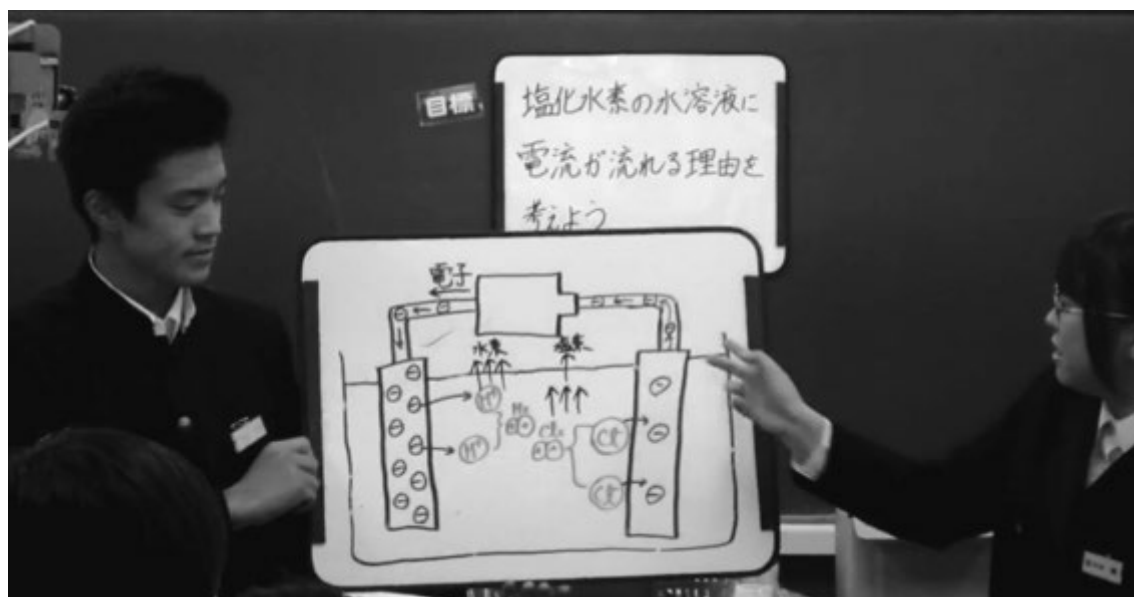 目標
塩化水素の水溶液に
電流が流れる理由を
考えよう
電子
水素
塩素
H⁺
H₂
H⁺
Cl₂
Cl⁻
Cl⁻